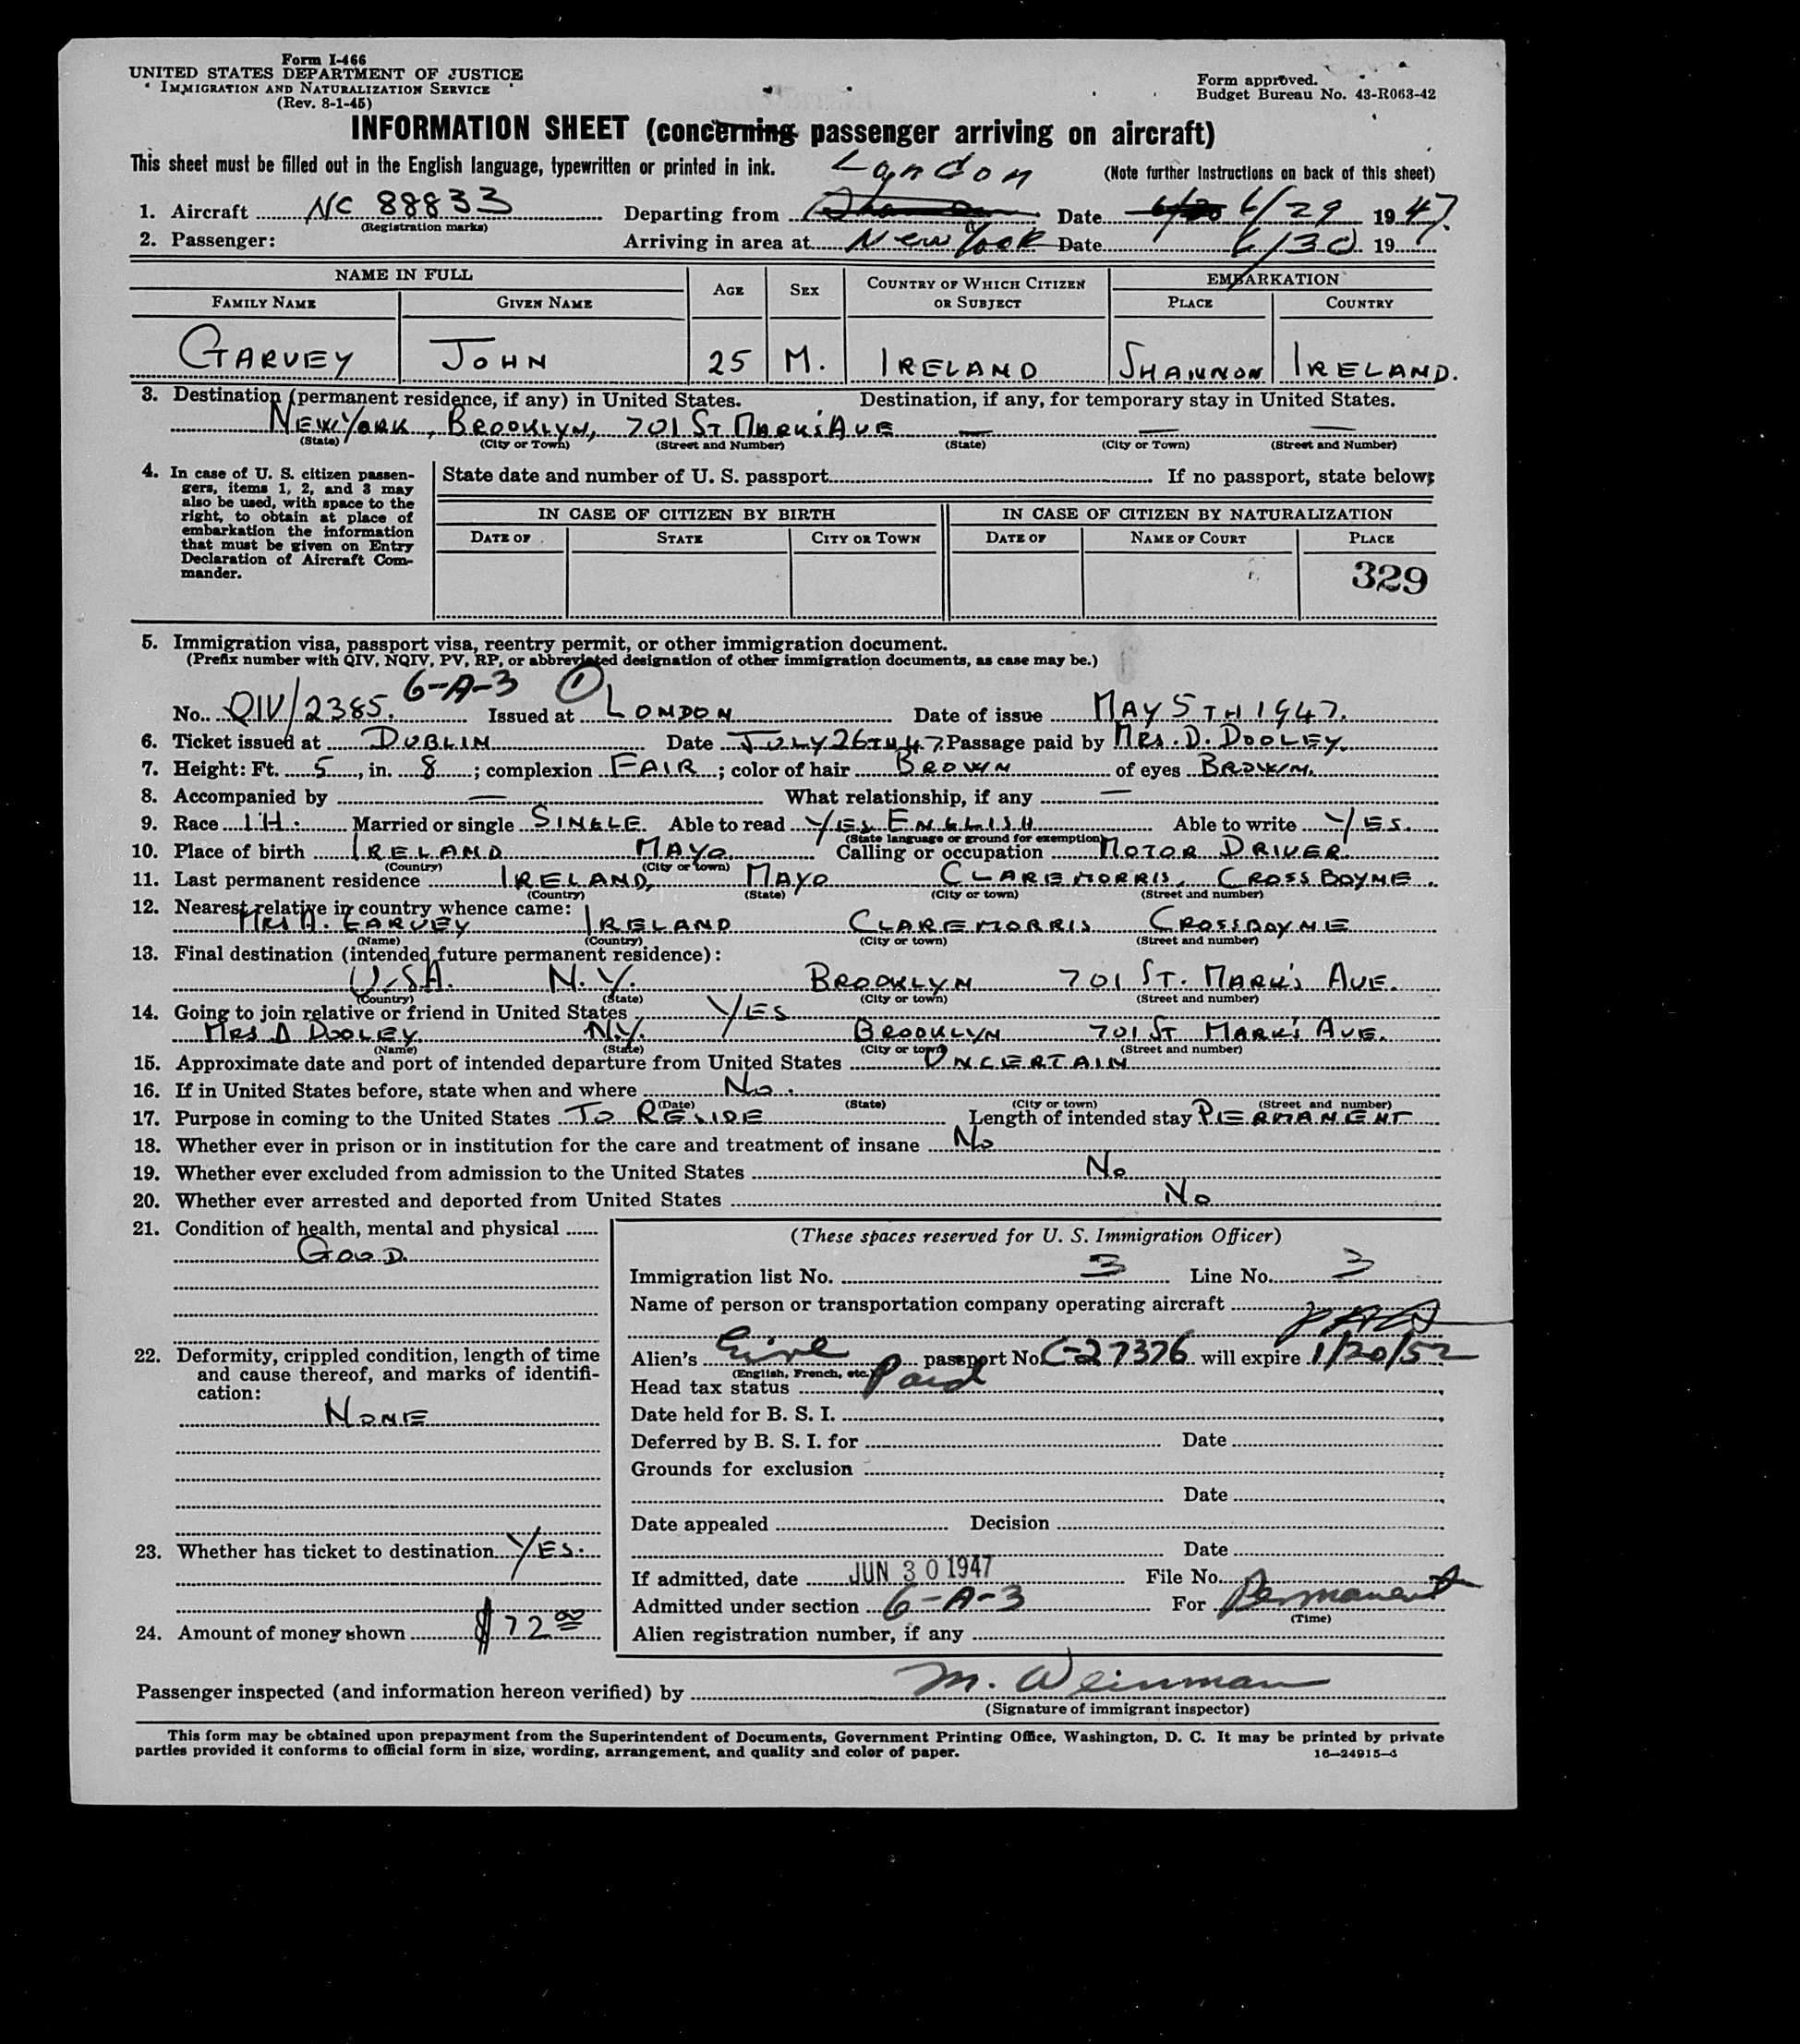 Form I-466
UNITED STATES DEPARTMENT OF JUSTICE
IMMIGRATION AND NATURALIZATION SERVICE
(Rev. 8-1-45)
Form approved.
Budget Bureau No. 43-R063-42
INFORMATION SHEET (concerning passenger arriving on aircraft)
This sheet must be filled out in the English language, typewritten or printed in ink. London (Note further instructions on back of this sheet)
1. Aircraft NC 88833 Departing from Date 6/29 1947.
(Registration marks)
2. Passenger: Arriving in area at New York Date 6/30 19
NAME IN FULL AGE SEX COUNTRY OF WHICH CITIZEN OR SUBJECT EMBARKATION
FAMILY NAME GIVEN NAME PLACE COUNTRY
GARVEY JOHN 25 M. IRELAND SHANNON IRELAND.
3. Destination (permanent residence, if any) in United States. Destination, if any, for temporary stay in United States.
NEW YORK, BROOKLYN, 701 ST MARK'S AVE — — —
(State) (City or Town) (Street and Number) (State) (City or Town) (Street and Number)
4. In case of U. S. citizen passengers, items 1, 2, and 3 may also be used, with space to the right, to obtain at place of embarkation the information that must be given on Entry Declaration of Aircraft Commander.
State date and number of U. S. passport If no passport, state below:
IN CASE OF CITIZEN BY BIRTH IN CASE OF CITIZEN BY NATURALIZATION
DATE OF STATE CITY OR TOWN DATE OF NAME OF COURT PLACE
329
5. Immigration visa, passport visa, reentry permit, or other immigration document.
(Prefix number with QIV, NQIV, PV, RP, or abbreviated designation of other immigration documents, as case may be.)
6-A-3 1
No. QIV/2385. Issued at LONDON Date of issue MAY 5TH 1947.
6. Ticket issued at DUBLIN Date JULY 26TH 47 Passage paid by MRS. D. DOOLEY.
7. Height: Ft. 5, in. 8; complexion FAIR; color of hair BROWN of eyes BROWN.
8. Accompanied by — What relationship, if any —
9. Race IH. Married or single SINGLE Able to read YES ENGLISH Able to write YES.
(State language or ground for exemption)
10. Place of birth IRELAND MAYO Calling or occupation MOTOR DRIVER
(Country) (City or town)
11. Last permanent residence IRELAND, MAYO CLAREMORRIS, CROSSBOYNE.
(Country) (State) (City or town) (Street and number)
12. Nearest relative in country whence came:
MRS A. GARVEY IRELAND CLAREMORRIS CROSSBOYNE
(Name) (Country) (City or town) (Street and number)
13. Final destination (intended future permanent residence):
U.S.A. N.Y. BROOKLYN 701 ST. MARK'S AVE.
(Country) (State) (City or town) (Street and number)
14. Going to join relative or friend in United States YES
MRS D DOOLEY N.Y. BROOKLYN 701 ST MARK'S AVE.
(Name) (State) (City or town) (Street and number)
15. Approximate date and port of intended departure from United States UNCERTAIN
16. If in United States before, state when and where No.
(Date) (State) (City or town) (Street and number)
17. Purpose in coming to the United States TO RESIDE Length of intended stay PERMANENT
18. Whether ever in prison or in institution for the care and treatment of insane No
19. Whether ever excluded from admission to the United States No
20. Whether ever arrested and deported from United States No
21. Condition of health, mental and physical
GOOD.
22. Deformity, crippled condition, length of time and cause thereof, and marks of identification:
NONE
23. Whether has ticket to destination YES.
24. Amount of money shown $72 00
(These spaces reserved for U. S. Immigration Officer)
Immigration list No. 3 Line No. 3
Name of person or transportation company operating aircraft
Alien's Eire passport No. C-27376 will expire 1/20/52
(English, French, etc.)
Head tax status Paid
Date held for B. S. I.
Deferred by B. S. I. for Date
Grounds for exclusion
Date
Date appealed Decision
Date
If admitted, date JUN 30 1947 File No.
Admitted under section 6-A-3 For Permanent
(Time)
Alien registration number, if any
Passenger inspected (and information hereon verified) by M. Weinman
(Signature of immigrant inspector)
This form may be obtained upon prepayment from the Superintendent of Documents, Government Printing Office, Washington, D. C. It may be printed by private
parties provided it conforms to official form in size, wording, arrangement, and quality and color of paper. 16—24915-